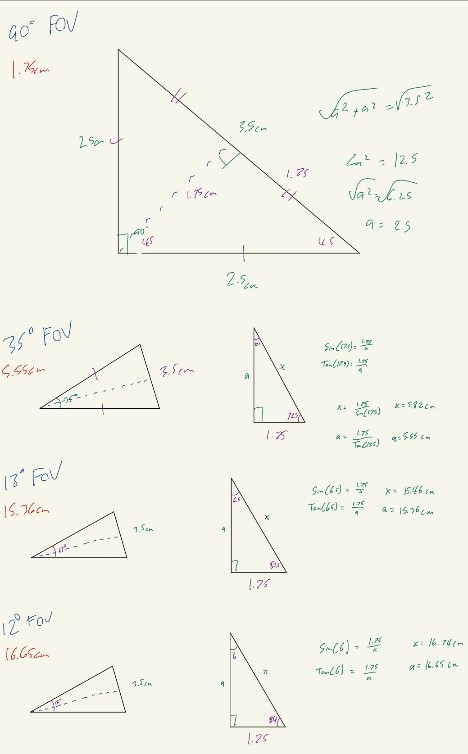 90° FOV
1.75cm
2.5cm
3.5cm
1.75
1.75cm
90°
45
45
2.5cm
a² = 12.5
a = 2.5
35° FOV
5.55cm
35°
3.5cm
a
x
1.75
Sin(17.5) = 1.75/x
Tan(17.5) = 1.75/a
x = 1.75/Sin(17.5) x = 5.82cm
a = 1.75/Tan(17.5) a = 5.55 cm
13° FOV
15.36cm
13°
3.5cm
6.5
a
x
1.75
Sin(6.5) = 1.75/x x = 15.46 cm
Tan(6.5) = 1.75/a a = 15.36 cm
12° FOV
16.65cm
3.5cm
6
a
x
84
1.75
Sin(6) = 1.75/x x = 16.74cm
Tan(6) = 1.75/a a = 16.65 cm